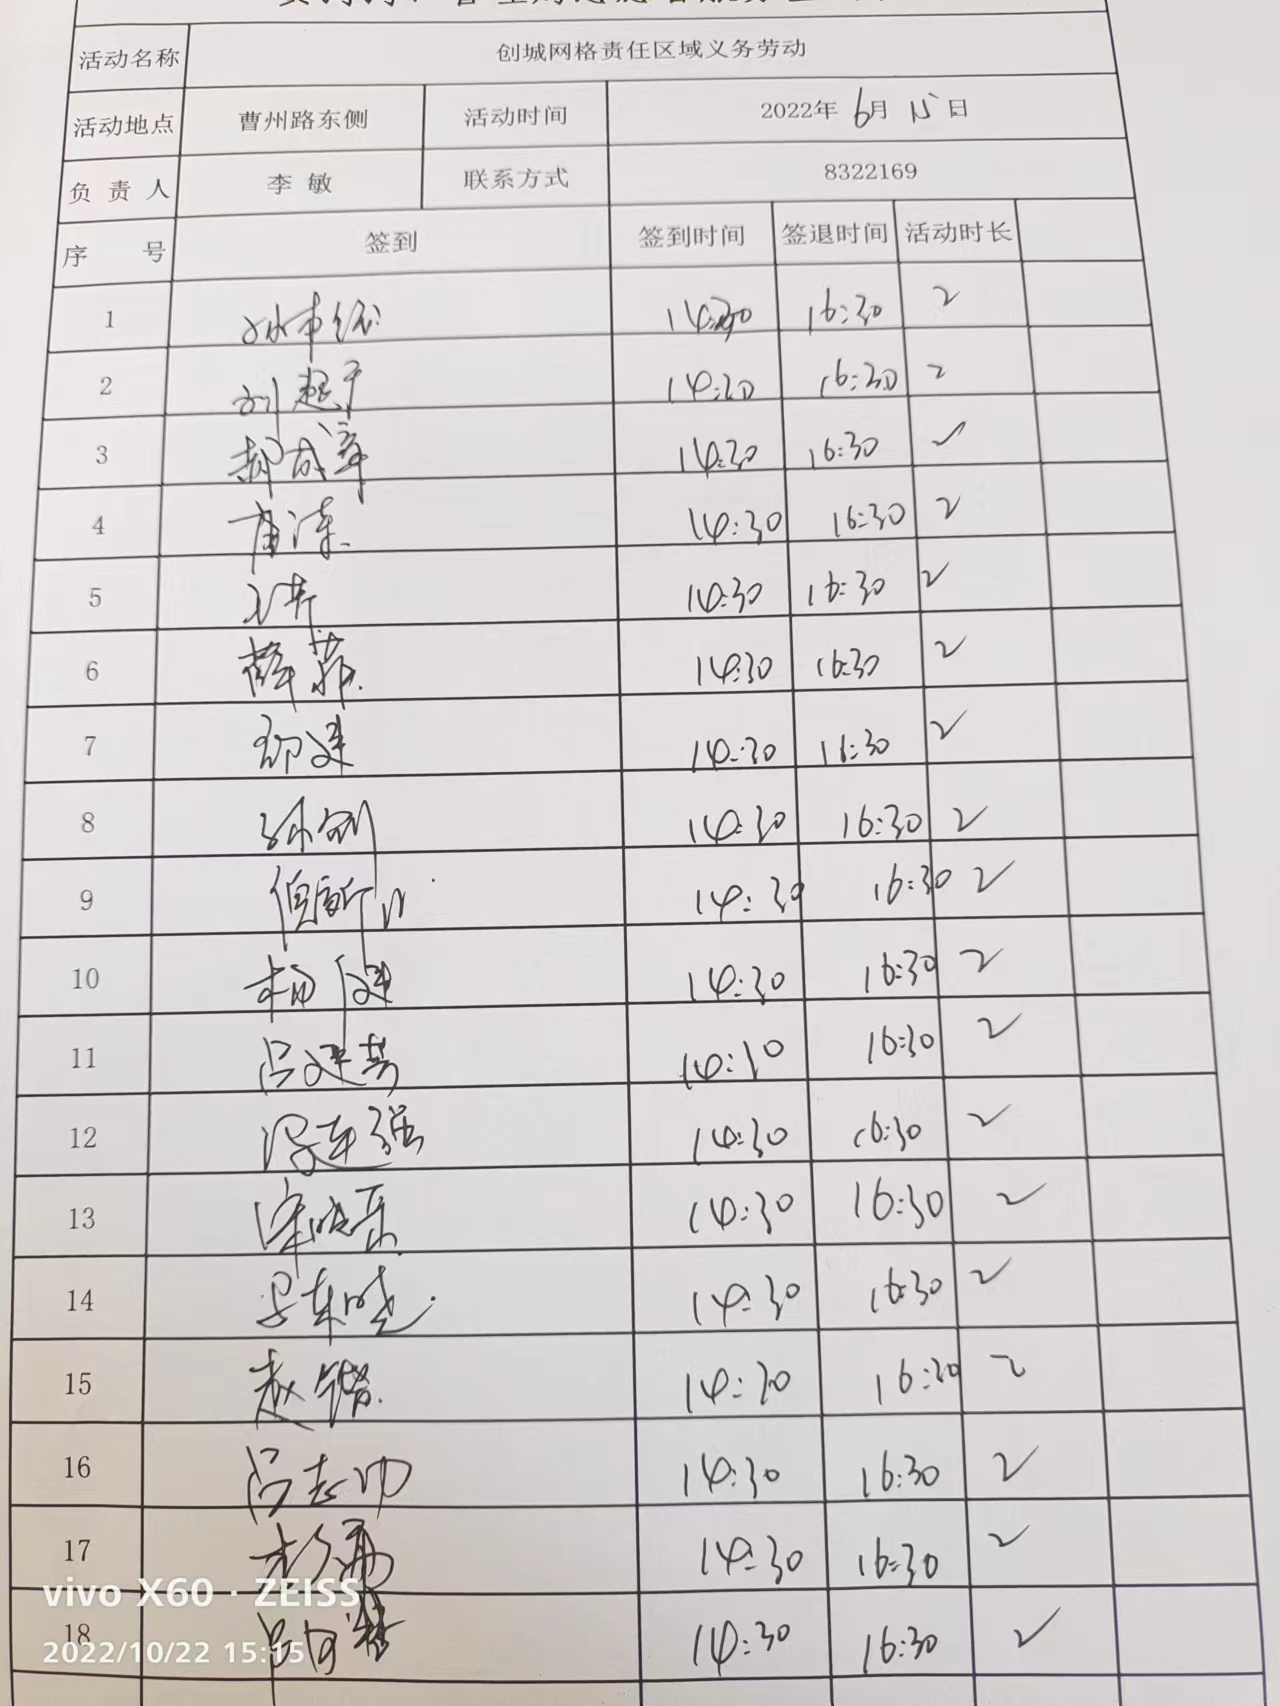 活动名称 创城网格责任区域义务劳动
活动地点 曹州路东侧 活动时间 2022年6月15日
负责人 李敏 联系方式 8322169
序号 签到 签到时间 签退时间 活动时长
1 14:30 16:30 2
2 刘超 14:30 16:30 2
3 郝成 14:30 16:30 2
4 14:30 16:30 2
5 14:30 16:30 2
6 薛菲 14:30 16:30 2
7 邵建 14:30 16:30 2
8 孙钊 14:30 16:30 2
9 14:30 16:30 2
10 杨健 14:30 16:30 2
11 吕建芳 14:30 16:30 2
12 强 14:30 16:30 2
13 14:30 16:30 2
14 晓 14:30 16:30 2
15 赵锴 14:30 16:30 2
16 吕志功 14:30 16:30 2
17 14:30 16:30 2
18 14:30 16:30 2
vivo X60 · ZEISS
2022/10/22 15:15